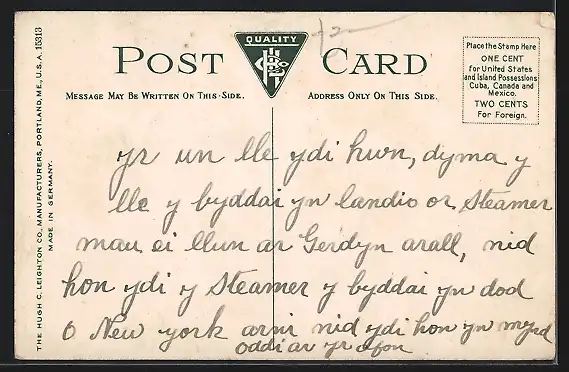 THE HUGH C. LEIGHTON CO., MANUFACTURERS, PORTLAND, ME., U.S.A. 15313
MADE IN GERMANY.
QUALITY
POST CARD
MESSAGE MAY BE WRITTEN ON THIS SIDE.
ADDRESS ONLY ON THIS SIDE.
Place the Stamp Here
ONE CENT
for United States
and Island Possessions
Cuba, Canada and
Mexico.
TWO CENTS
For Foreign.
yr un lle ydi hwn, dyma y
lle y byddai yn landio or Steamer
mau ei llun ar Gerdyn arall, nid
hon ydi y Steamer y byddai yn dod
o New york arni nid ydi hon yn mynd
oddiar yr afon